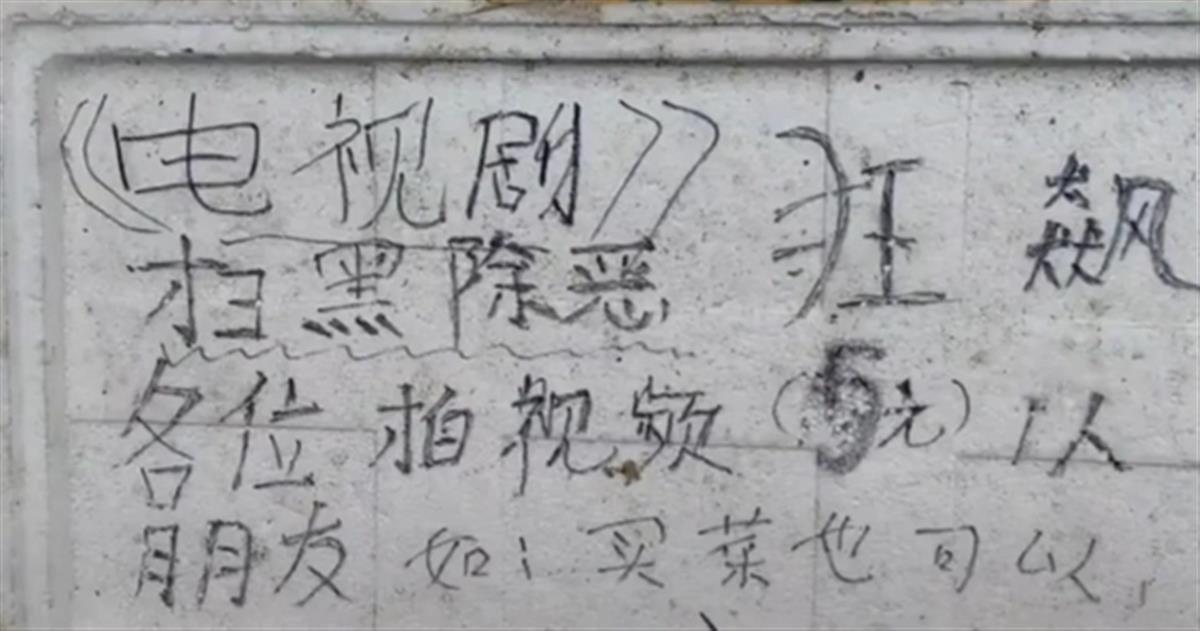 《电视剧》 狂 飙
扫黑除恶
各位 拍视频 (5元) 1人
朋友 如: 买菜也可以,